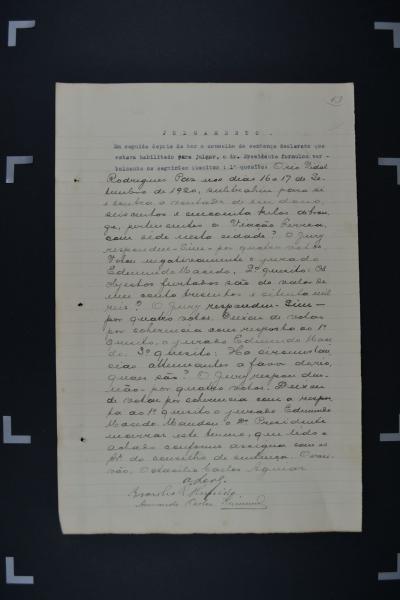 JULGAMENTO.
Em seguida depois de ter o conselho de sentença declarado que
estava habilitado para julgar, o dr. Presidente formulou ver-
balmente os seguintes quesitos: 1º quesito: O réo Vidal
Rodrigues Paz nos dias 16 e 17 de Se-
tembro de 1920, subtrahiu para si
e contra a vontade de seu dono,
seiscentos e cincoenta kilos de bron-
ze, pertencentes a Viação Ferrea,
com séde nesta cidade? O Jury
respondeu - Sim - por quatro votos.
Votou negativamente o jurado
Edmundo Macedo. 2º quesito: Os
objectos furtados são do valor de
um conto trezentos e setenta mil
reis? O Jury respondeu - Sim -
por quatro votos. Deixou de votar
por coherencia com resposta ao 1º
quesito, o jurado Edmundo Mace-
do. 3º quesito: Ha circumstan-
cias attenuantes a favor do réo,
quaes são? O Jury respondeu
- Não - por quatro votos. Deixou
de votar por coherencia com a respos-
ta ao 1º quesito o jurado Edmundo
Macedo. Mandou o Dr. Presidente
lavrar este termo, que lido e
achado conforme assigna com os
do conselho de sentença. O escri-
vão, Carlos Aguiar